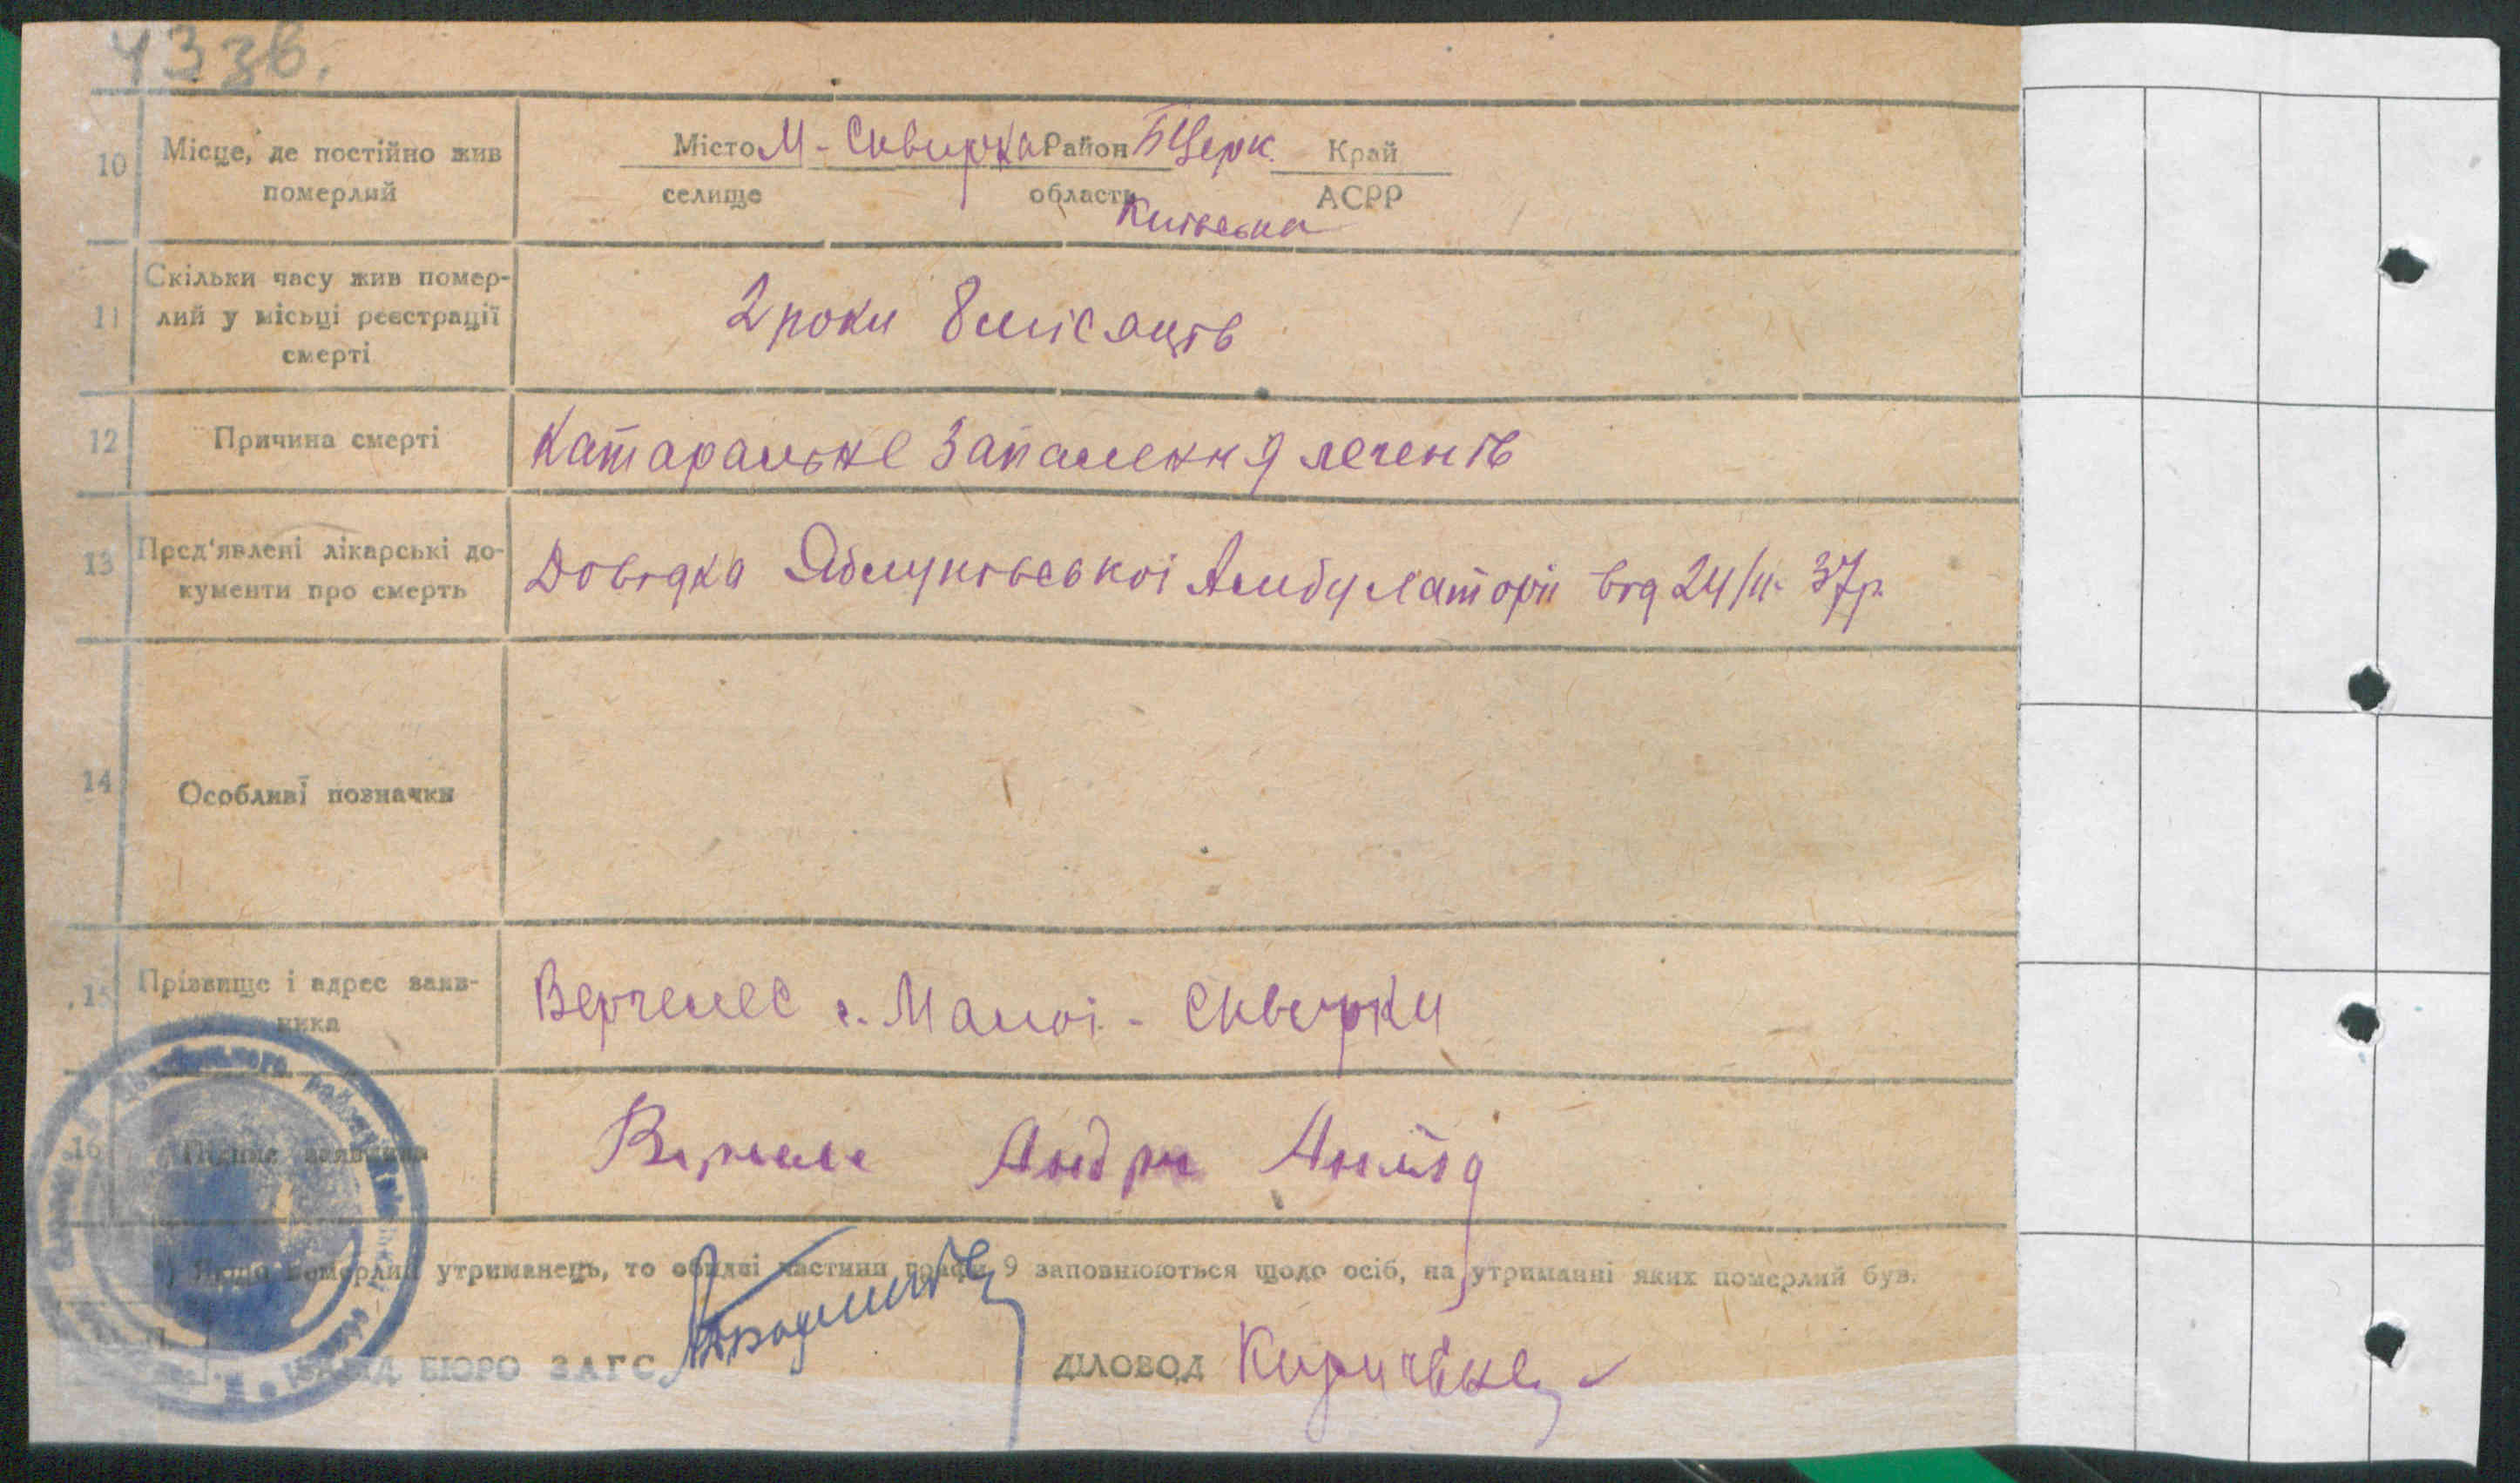 43 зв.
10 Місце, де постійно жив померлий
Місто М-Сквирка Район БЦерк. Край
селище область Київська АСРР
11 Скільки часу жив помер-
лий у місьці реєстрації
смерті
2 роки 8 місяців
12 Причина смерті
Катаральне запалення легенів
13 Пред'явлені лікарські до-
кументи про смерть
Довідка Яблунівської Амбулаторіі від 24/II- 37р.
14 Особливі позначки
15 Прізвище і адрес заяв-
ника
Верчемес с. Малоі - Сквирки
16 Підпис заявника
утриманець, то обидві частини графи 9 заповнюються щодо осіб, на утриманні яких померлий був.
БЮРО ЗАГС
ДІЛОВОД